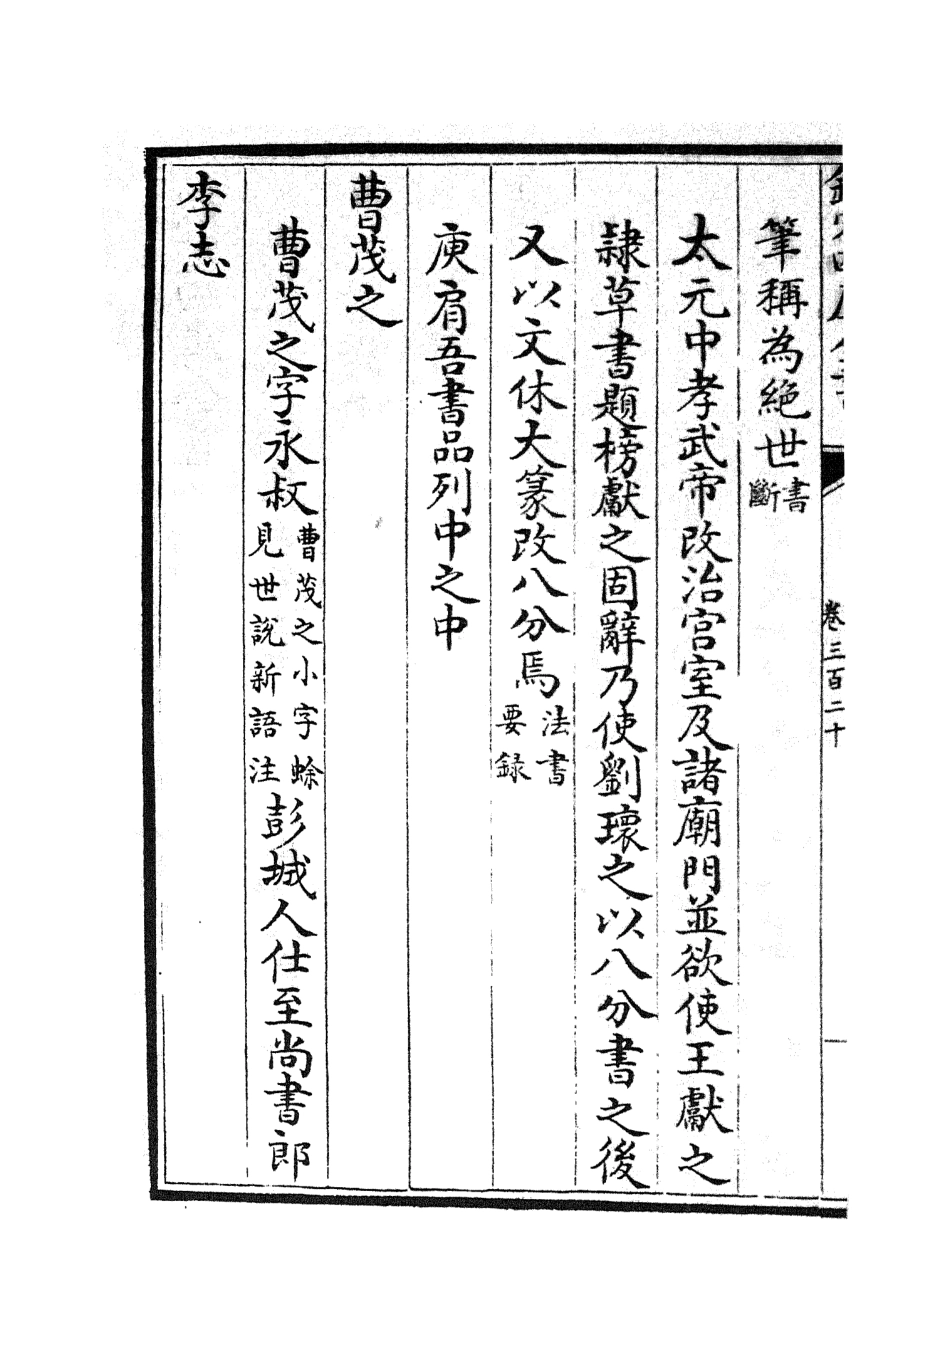 卷三百二十
筆稱為絶世書斷
太元中孝武帝改治宫室及諸廟門並欲使王獻之
隷草書題榜獻之固辭乃使劉瓌之以八分書之後
又以文休大篆改八分焉法書要録
庾肩吾書品列中之中
曹茂之
曹茂之字永叔曹茂之小字蜍見世說新語注彭城人仕至尚書郎
李志